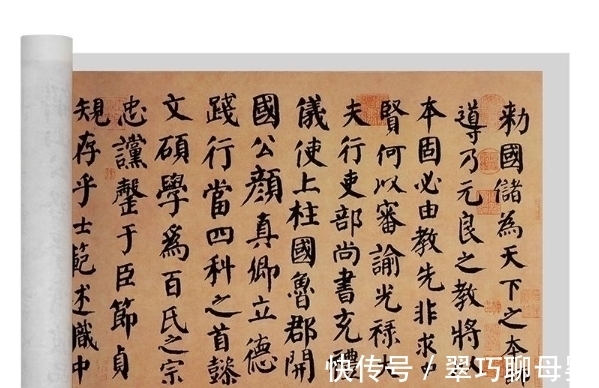 勅國儲為天下之本
導乃元良之教將以
本固必由教先非求
賢何以審諭光祿大
夫行吏部尚書充禮
儀使上柱國魯郡開
國公顏真卿立德
踐行當四科之首懿
文碩學爲百氏之宗
忠讜罄于臣節貞
規存乎士範述職中
快传号 / 翠巧聊母